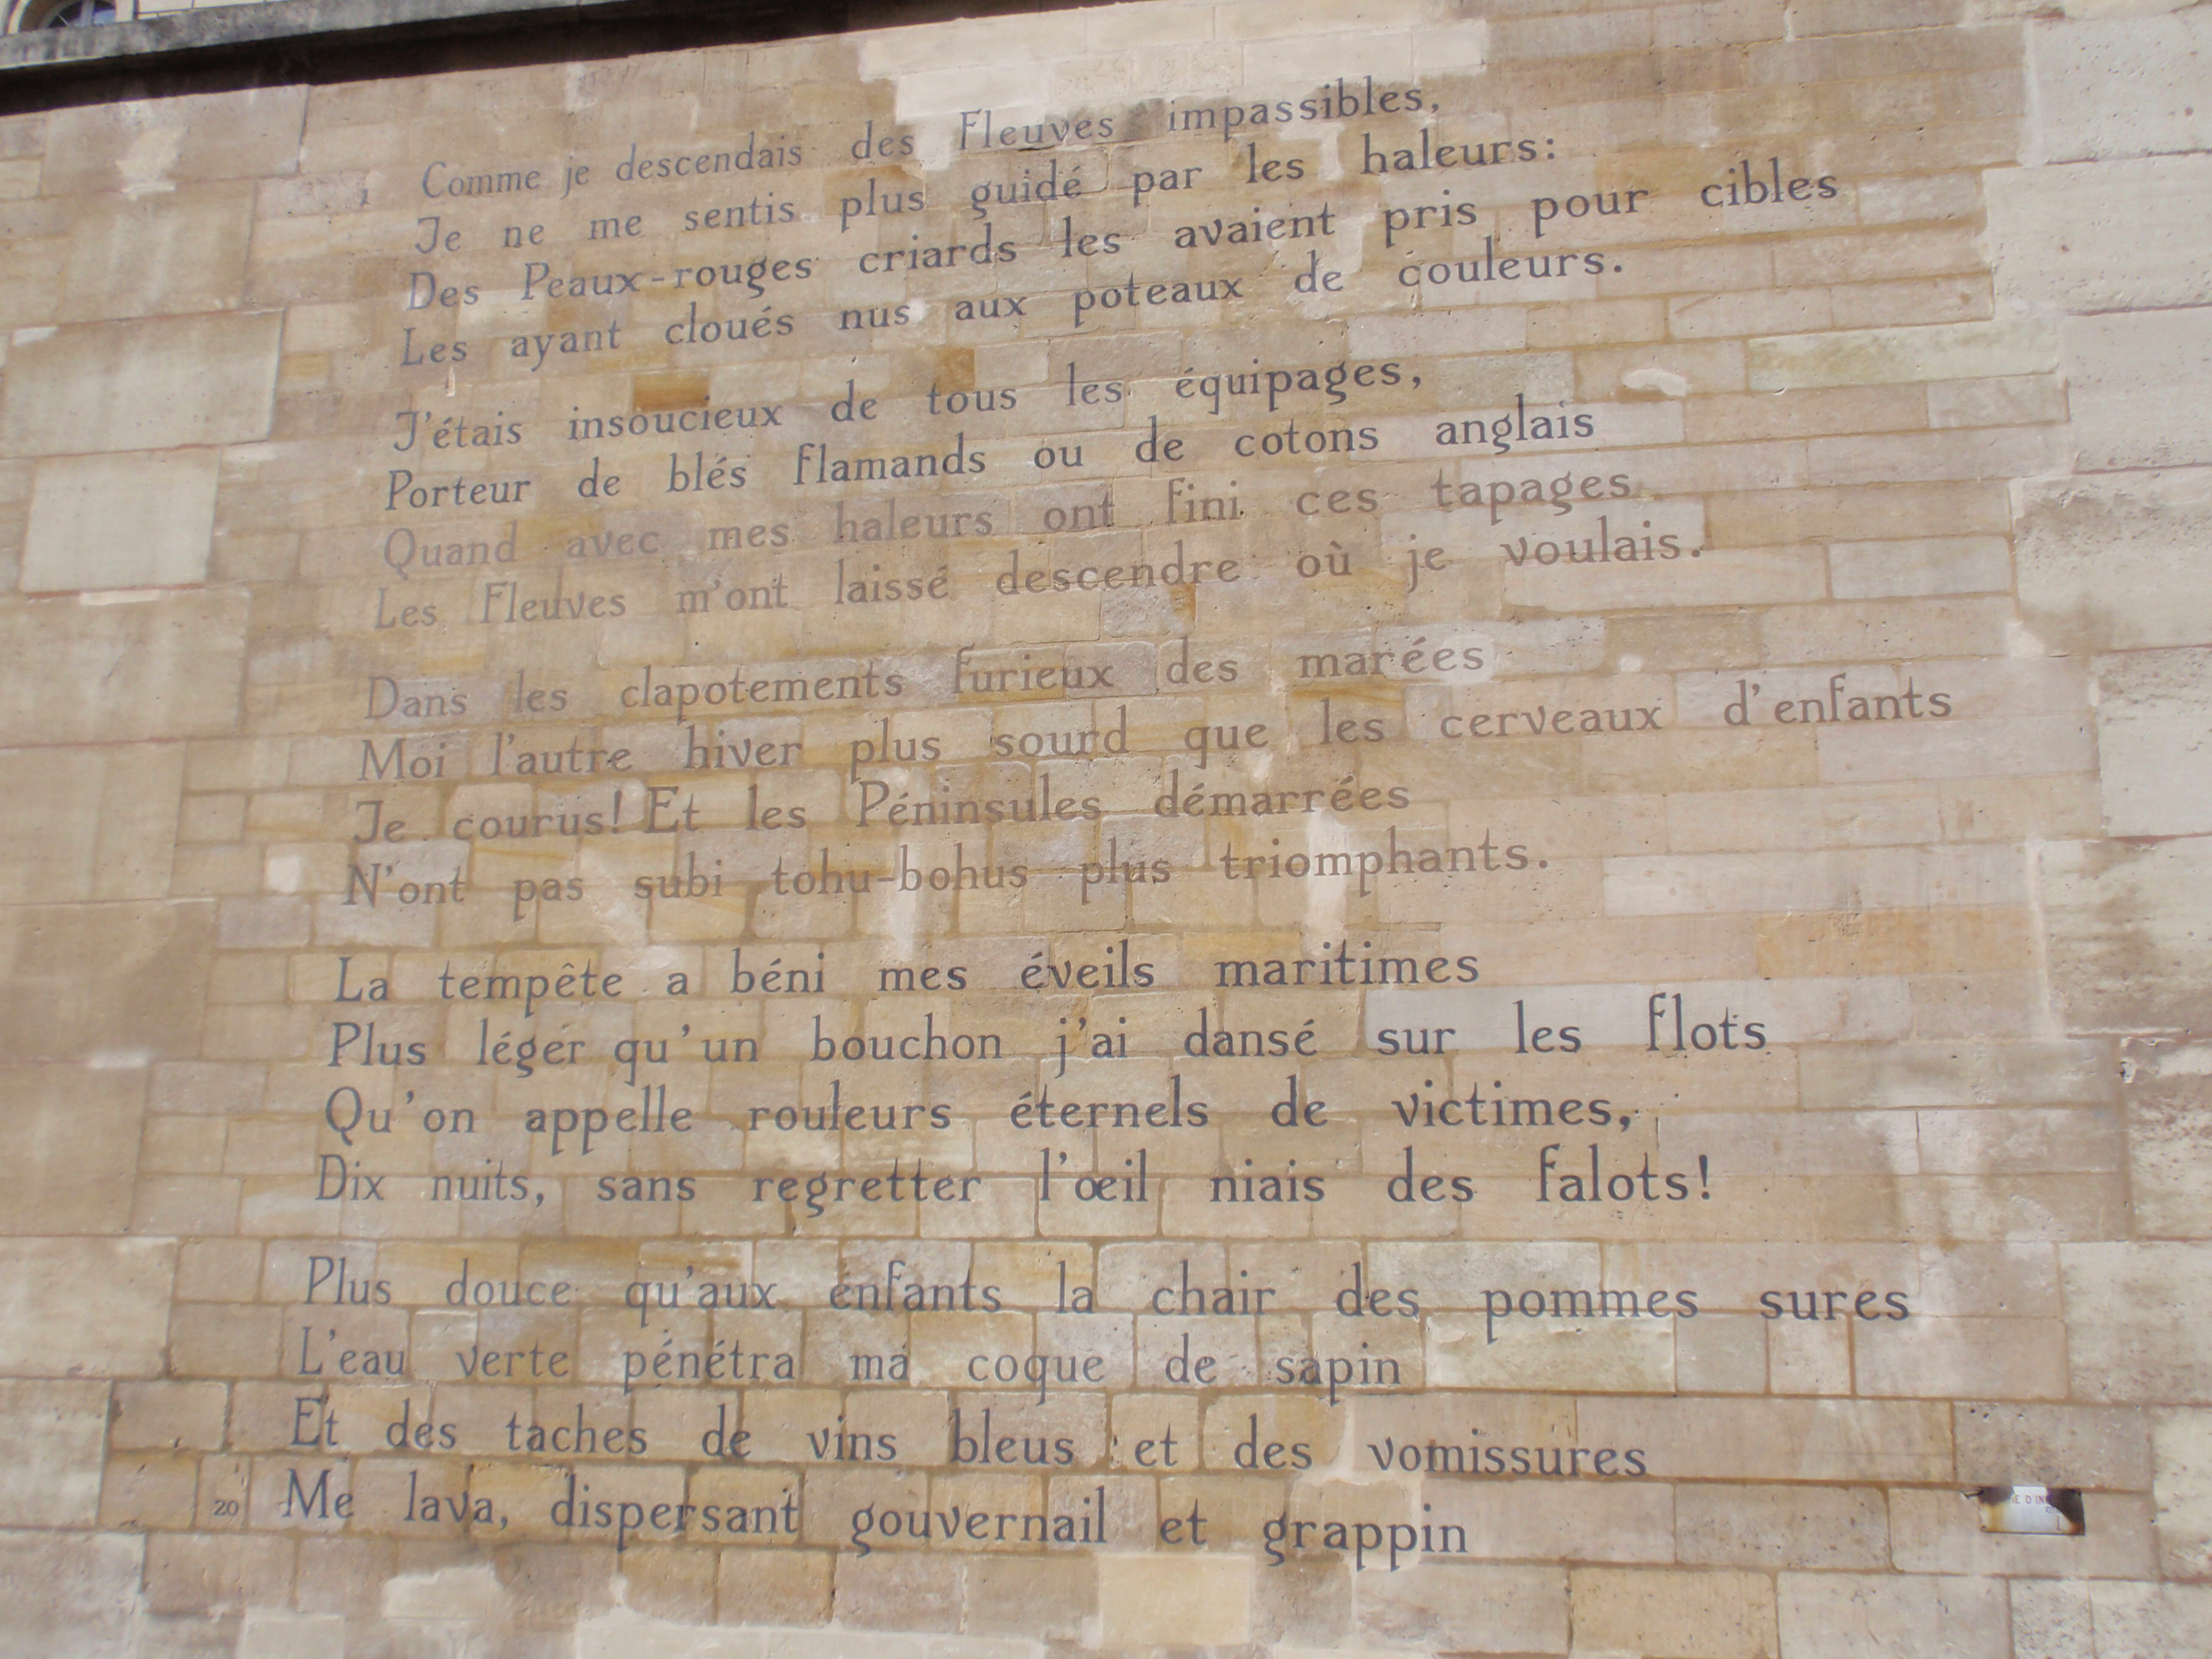 1 Comme je descendais des Fleuves impassibles,
Je ne me sentis plus guidé par les haleurs:
Des Peaux-rouges criards les avaient pris pour cibles
Les ayant cloués nus aux poteaux de couleurs.
J'étais insoucieux de tous les équipages,
Porteur de blés flamands ou de cotons anglais
Quand avec mes haleurs ont fini ces tapages
Les Fleuves m'ont laissé descendre où je voulais.
Dans les clapotements furieux des marées
Moi l'autre hiver plus sourd que les cerveaux d'enfants
Je courus! Et les Péninsules démarrées
N'ont pas subi tohu-bohus plus triomphants.
La tempête a béni mes éveils maritimes
Plus léger qu'un bouchon j'ai dansé sur les flots
Qu'on appelle rouleurs éternels de victimes,
Dix nuits, sans regretter l'œil niais des falots!
Plus douce qu'aux enfants la chair des pommes sures
L'eau verte pénétra ma coque de sapin
Et des taches de vins bleus et des vomissures
20 Me lava, dispersant gouvernail et grappin